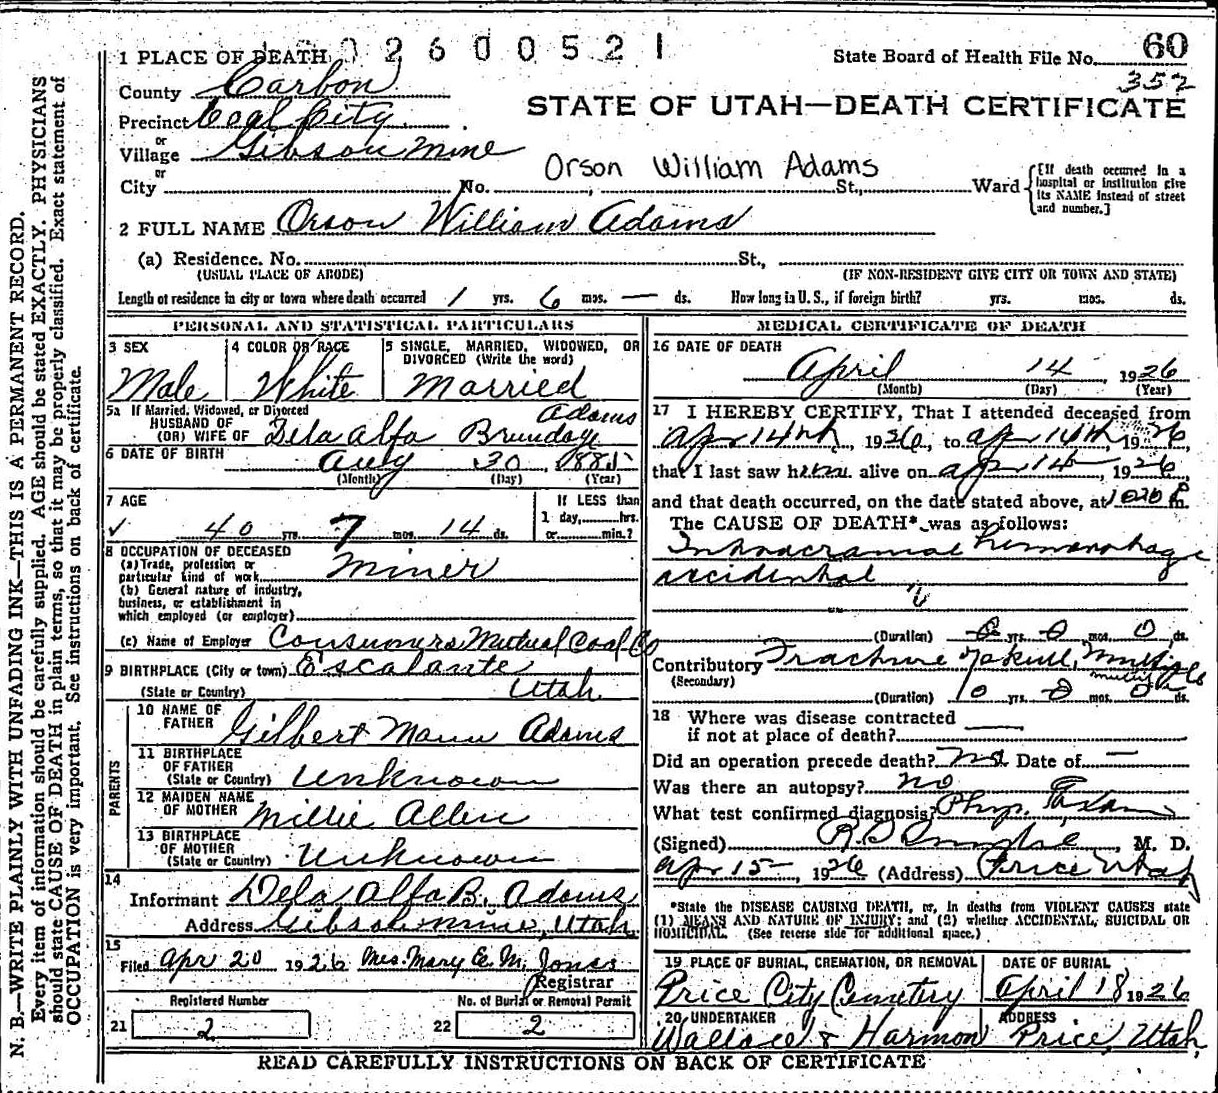 02600521
1 PLACE OF DEATH
State Board of Health File No. 60
352
County Carbon
STATE OF UTAH—DEATH CERTIFICATE
Precinct Coal City
or
Village Gibson Mine
or
Orson William Adams
City No. St., Ward
[If death occurred in a hospital or institution give its NAME instead of street and number.]
2 FULL NAME Orson William Adams
(a) Residence. No. St.,
(USUAL PLACE OF ABODE) (IF NON-RESIDENT GIVE CITY OR TOWN AND STATE)
Length of residence in city or town where death occurred 1 yrs. 6 mos. — ds. How long in U. S., if foreign birth? yrs. mos. ds.
PERSONAL AND STATISTICAL PARTICULARS
3 SEX
Male
4 COLOR OR RACE
White
5 SINGLE, MARRIED, WIDOWED, OR DIVORCED (Write the word)
Married
5a If Married, Widowed, or Divorced
HUSBAND OF
(OR) WIFE OF Dela Alfa Brundage Adams
6 DATE OF BIRTH Aug 30, 1885
(Month) (Day) (Year)
7 AGE
40 yrs. 7 mos. 14 ds.
If LESS than
1 day, hrs.
or min.?
8 OCCUPATION OF DECEASED
(a) Trade, profession or
particular kind of work Miner
(b) General nature of industry,
business, or establishment in
which employed (or employer)
(c) Name of Employer Consumers Mutual Coal Co
9 BIRTHPLACE (City or town) Escalante
(State or Country) Utah
PARENTS
10 NAME OF
FATHER Gilbert Mann Adams
11 BIRTHPLACE
OF FATHER
(State or Country) Unknown
12 MAIDEN NAME
OF MOTHER Millie Allen
13 BIRTHPLACE
OF MOTHER
(State or Country) Unknown
14
Informant Dela Alfa B. Adams
Address Gibson mine, Utah
15
Filed Apr 20 1926 Mrs. Mary E. M. Jones
Registrar
Registered Number
21 2
No. of Burial or Removal Permit
22 2
MEDICAL CERTIFICATE OF DEATH
16 DATE OF DEATH
April 14, 1926
(Month) (Day) (Year)
17 I HEREBY CERTIFY, That I attended deceased from
Apr 14th, 1926, to Apr 14th 1926,
that I last saw him alive on Apr 14, 1926,
and that death occurred, on the date stated above, at 1020 P m.
The CAUSE OF DEATH* was as follows:
Intracranial hemorrhage
accidental
(Duration) 0 yrs. 0 mos. 0 ds.
Contributory Fracture skull, multiple
(Secondary) multiple
(Duration) 0 yrs. 0 mos. 0 ds.
18 Where was disease contracted
if not at place of death?
Did an operation precede death? no Date of —
Was there an autopsy? no
What test confirmed diagnosis? Phys.
(Signed) , M. D.
Apr 15, 1926 (Address) Price Utah
*State the DISEASE CAUSING DEATH, or, in deaths from VIOLENT CAUSES state
(1) MEANS AND NATURE OF INJURY; and (2) whether ACCIDENTAL, SUICIDAL OR
HOMICIDAL. (See reverse side for additional space.)
19 PLACE OF BURIAL, CREMATION, OR REMOVAL
Price City Cemetery
DATE OF BURIAL
April 18 1926
20 UNDERTAKER
Wallace & Harmon
ADDRESS
Price, Utah,
READ CAREFULLY INSTRUCTIONS ON BACK OF CERTIFICATE
N. B.—WRITE PLAINLY WITH UNFADING INK—THIS IS A PERMANENT RECORD.
Every item of information should be carefully supplied. AGE should be stated EXACTLY. PHYSICIANS
should state CAUSE OF DEATH in plain terms, so that it may be properly classified. Exact statement of
OCCUPATION is very important. See instructions on back of certificate.